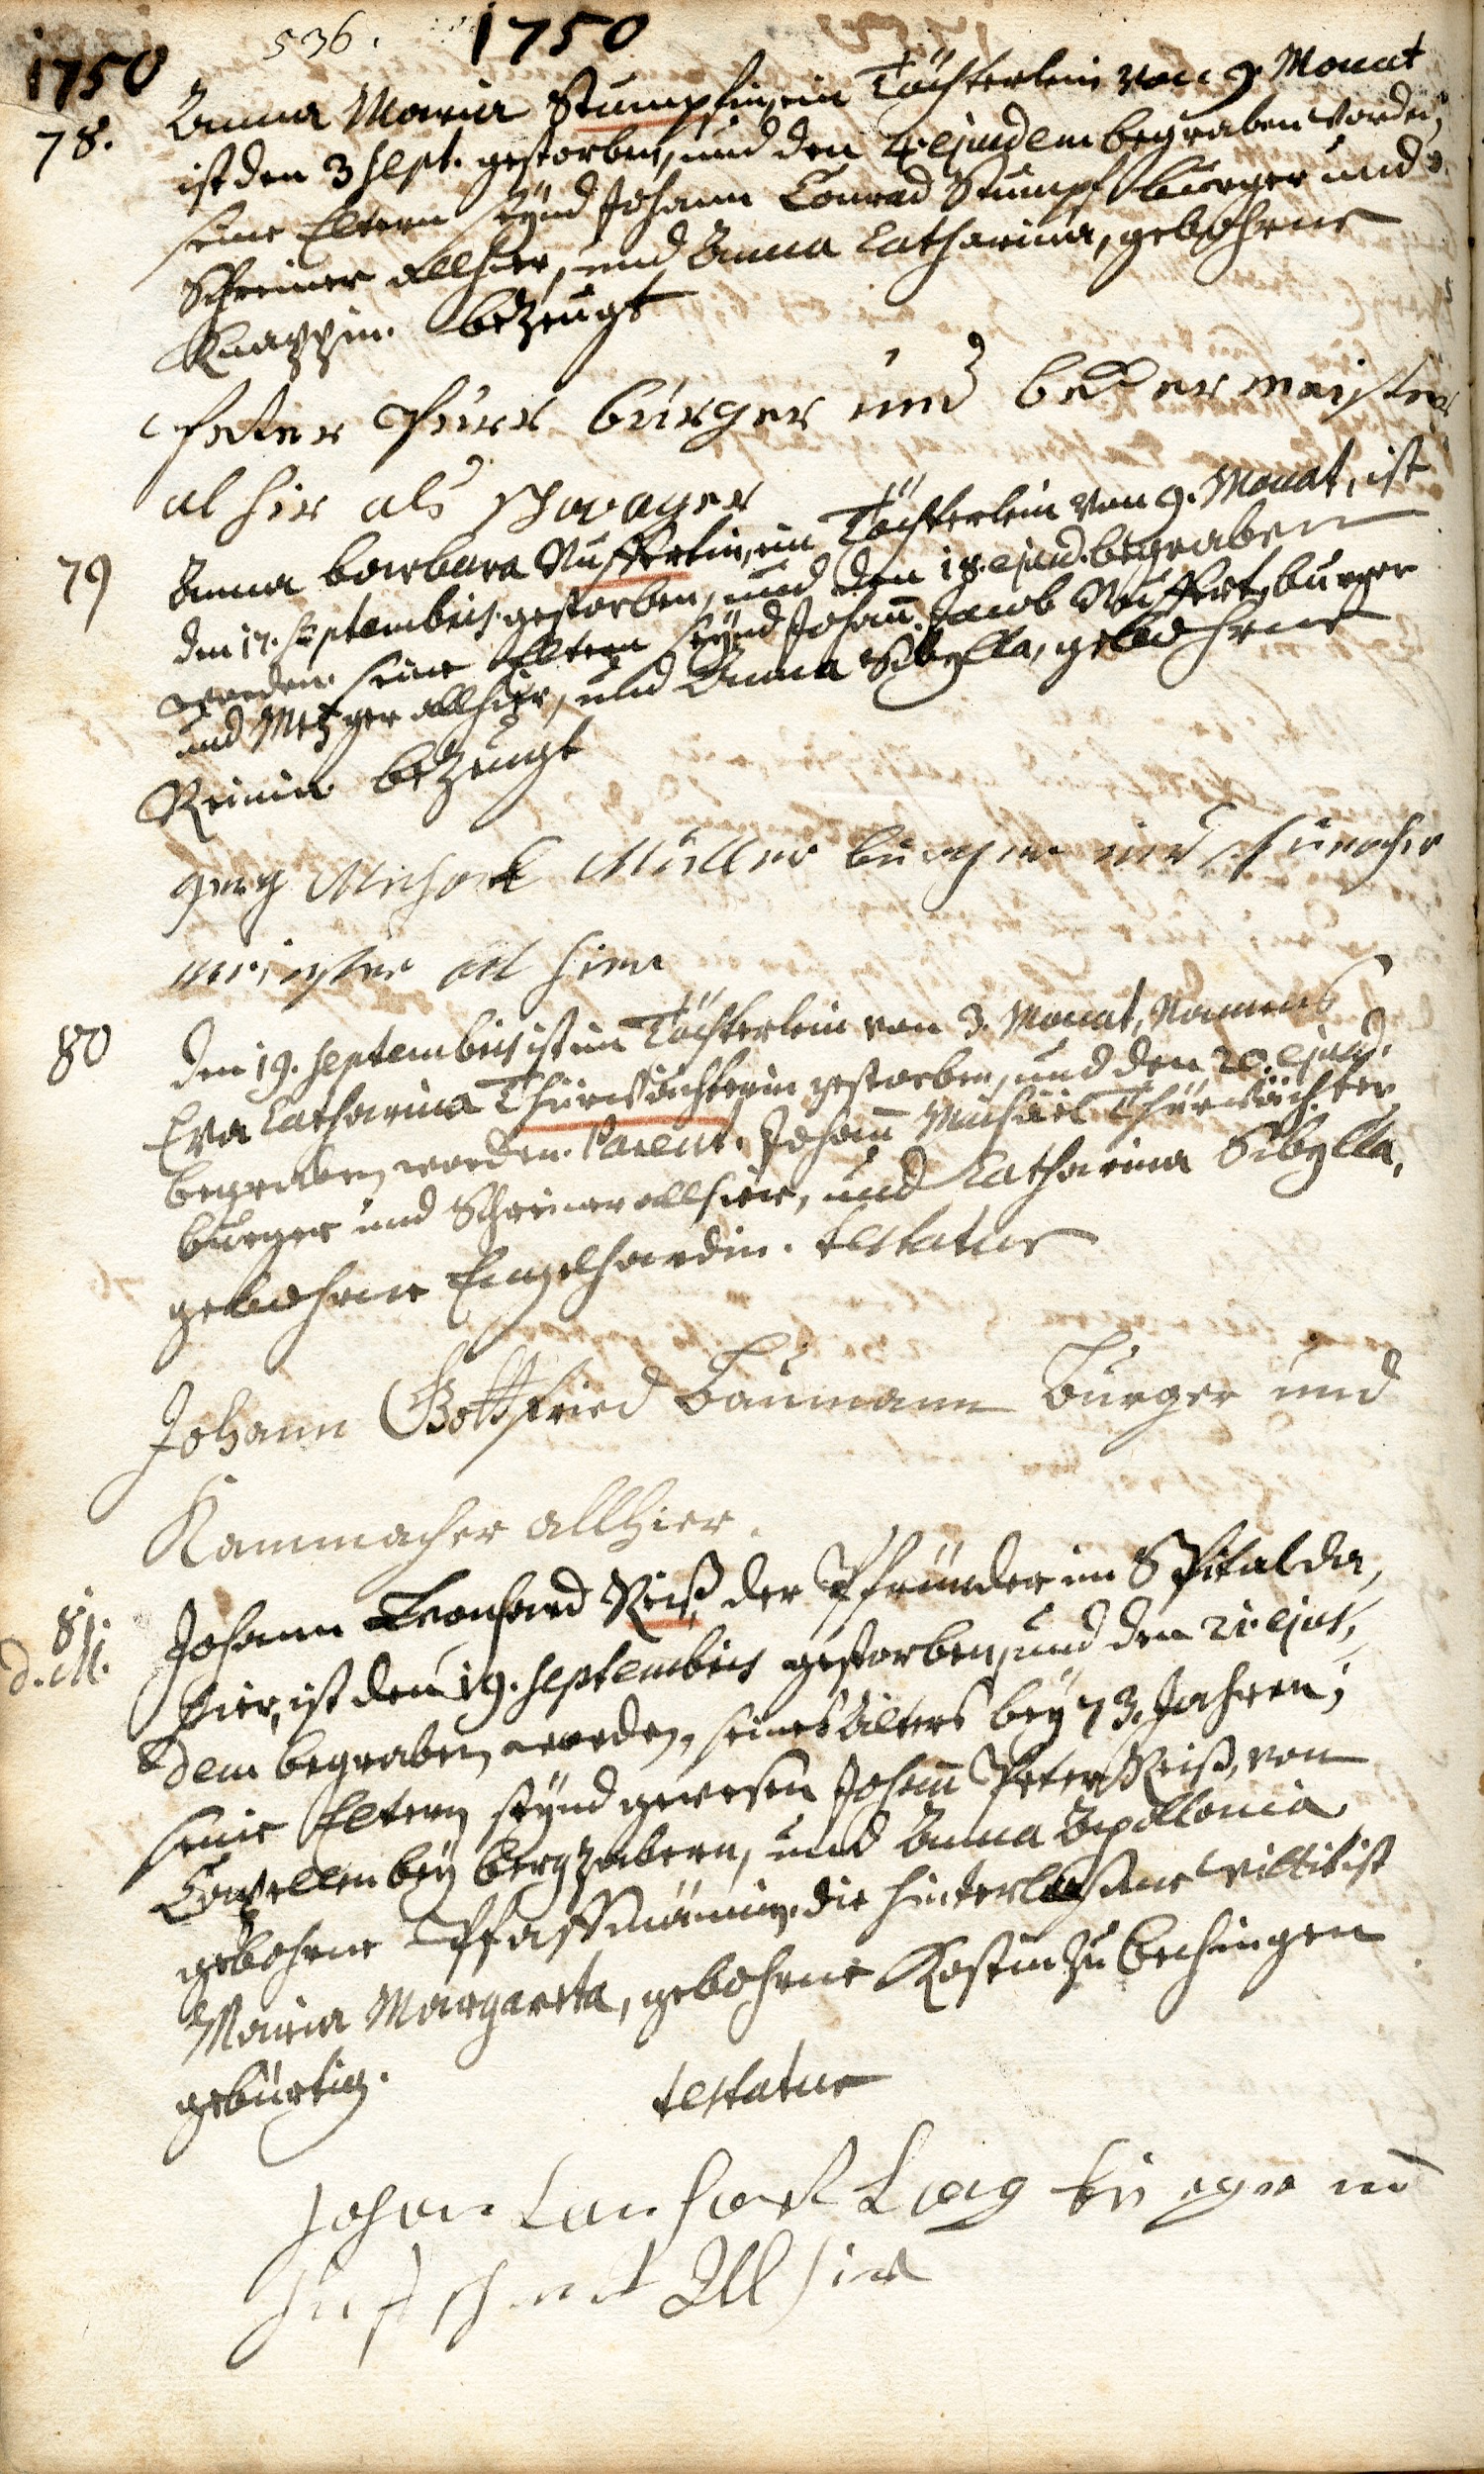 536. 1750
1750
78. Anna Maria Stumpfin, ein Töchterlein von 9. Monat
ist den 3 Sept. gestorben, und den 4. ejusdem begraben worden,
seine Eltern seynd Johann Conrad Stumpf burger und
Schreiner allhier, und Anna Catharina, gebohrne
Knappin. bezeugt
Peter burger und becker meister
al hir als schwager
79 Anna barbara Nuffertin, ein Töchterlein von 9. Monat, ist
den 17. Septembris gestorben, und den 18. ejusd. begraben
worden. seine Eltern seynd Johann Jacob Nuffert, burger
und Metzger allhier, und Anna Sibylla, gebohrne
bezeugt
Müller burger und
meister al hier
80 den 19. Septembris ist ein Töchterlein von 3. Monat, Namens
Eva Catharina Thürwächterin gestorben, und den 20. ejusd.
begraben worden. Parent. Johann Michäel Thürwächter,
burger und Schreiner allhier, und Catharina Sibylla,
gebohrne Engelhardin. testatur
Johann Gottfried Baumann Burger und
Kammacher allhier.
81. Johann Leonhard Reiß, der Pfründer im Spital da,
d. M. hier, ist den 19. Septembris gestorben, und den 21. ejus,
dem begraben worden, seines Alters bey 73. Jahren;
seine Eltern seynd gewesen Johann Peter Reiß, von
Capellen bey bergzabern, und Anna Apollonia
gebohrne Pfaffmännin. die hinterlaßene wittib ist
Maria Margareta, gebohrne Kostin zu bechingen
gebürtig. testatur
Johan Lanhart burger und
All hier